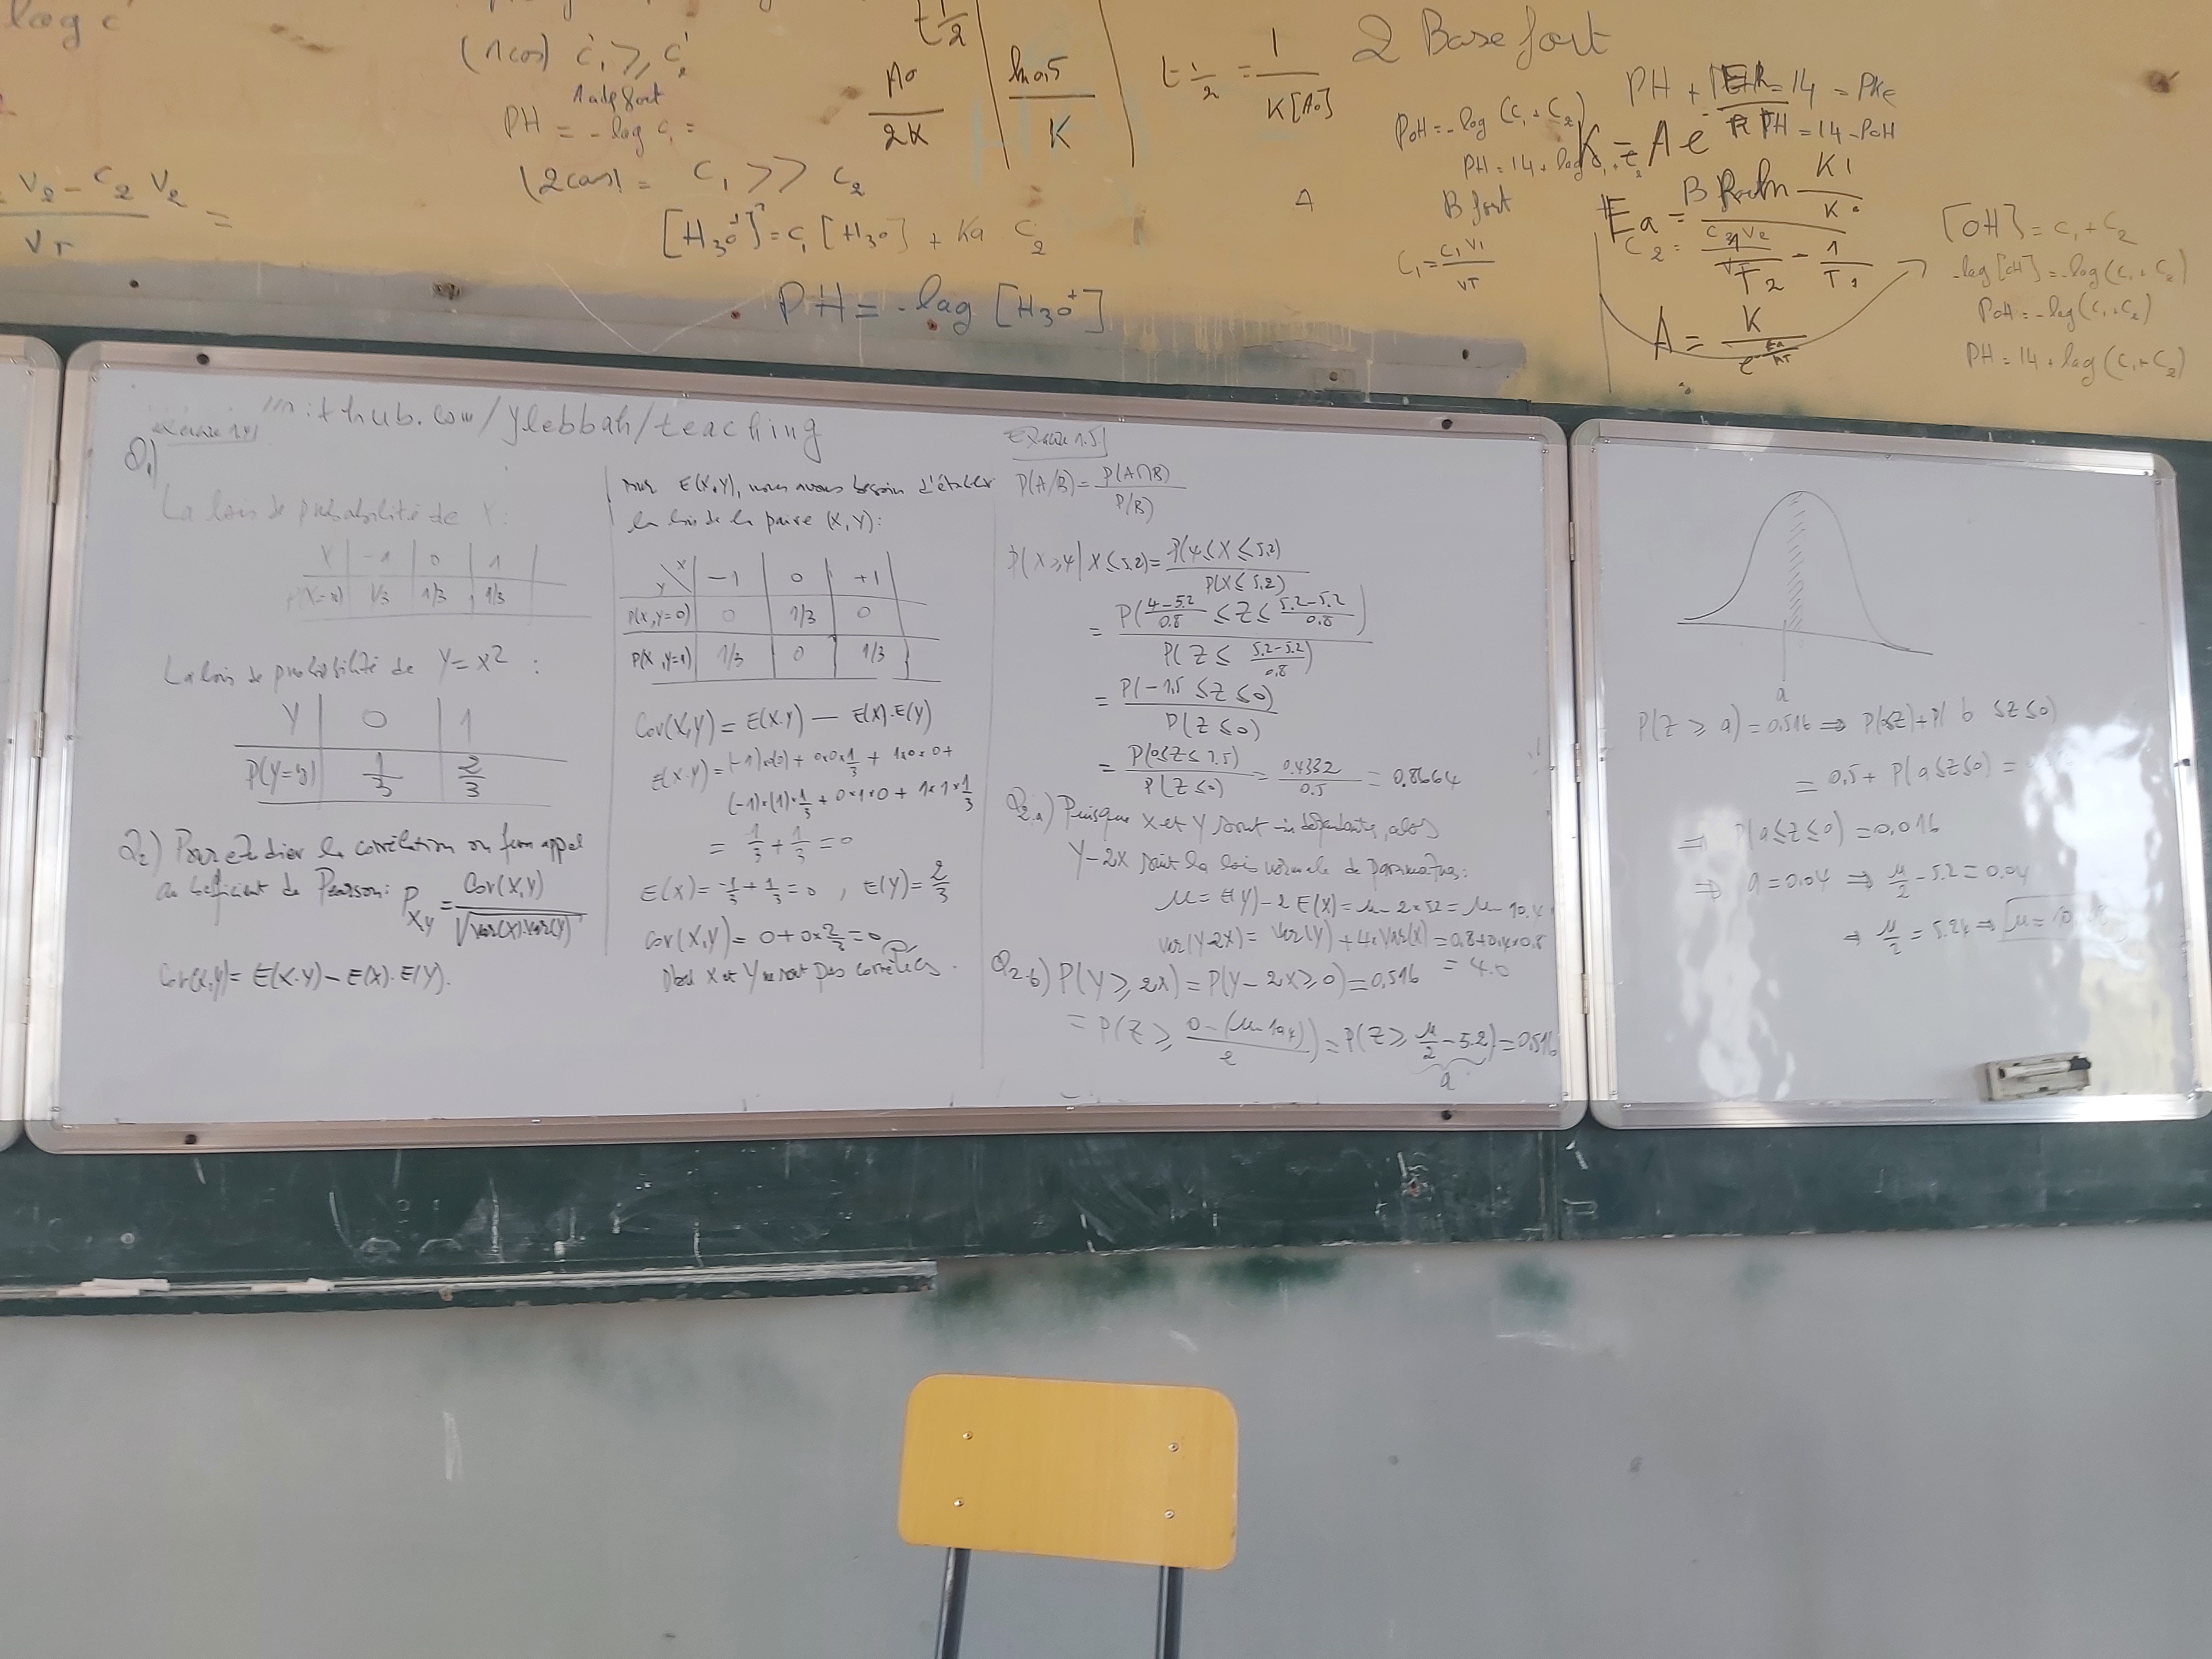 log c
(1cas) c₁ ⩾ c₂
1 acide fort
PH = -log c₁ =
(2cas) = C₁ >> C₂
[H₃O⁺]² = c₁ [H₃O] + Ka C₂
PH = -log [H₃O⁺]
V₂ - C₂ V₂ =
VT
t 1/2
A0 / 2K
ln 0,5 / K
t 1/2 = 1 / K[A0]
2 Base fort
PH + = 14 = PKe
PH = 14 - POH
POH = -log (C₁ + C₂)
K = A e
A
B fort
C₁ = C₁V₁ / VT
Ea =
K1
C₂ = C₂ V₂
1 / T2 - 1 / T1
A = K / e
[OH] = C₁ + C₂
-log [OH] = -log (C₁ + C₂)
POH = -log (C₁ + C₂)
PH = 14 + log (C₁ + C₂)
ithub.com/ylebbah/teaching
Q₁)
La lois de probabilité de X :
X | -1 | 0 | 1
P(X=x) | 1/3 | 1/3 | 1/3
La lois de probabilité de Y = X² :
Y | 0 | 1
P(Y=y) | 1/3 | 2/3
Q₂) Pour étudier la corrélation on fera appel
au coefficient de Pearson: ρ_XY = Cov(X,Y) / √Var(X).Var(Y)
Cov(X,Y) = E(X.Y) - E(X).E(Y).
Pour E(X.Y), nous avons besoin d'établir
la lois de la paire (X, Y):
Y \ X | -1 | 0 | +1
P(X, Y=0) | 0 | 1/3 | 0
P(X, Y=1) | 1/3 | 0 | 1/3
Cov(X,Y) = E(X.Y) - E(X).E(Y)
E(X.Y) = (-1)×0×0 + 0×0×1/3 + 1×0×0 +
(-1)×(1)×1/3 + 0×1×0 + 1×1×1/3
= 1/3 + 1/3 = 0
E(X) = -1/3 + 1/3 = 0 , E(Y) = 2/3
Cov(X,Y) = 0 + 0×2/3 = 0
D'où X et Y ne sont pas corrélées.
Exercice 1.5
P(A/B) = P(A∩B) / P(B)
P(X ⩾ 4 | X ≤ 5.2) = P(4 ≤ X ≤ 5.2) / P(X ≤ 5.2)
= P((4-5.2)/0.8 ≤ Z ≤ (5.2-5.2)/0.8) / P(Z ≤ (5.2-5.2)/0.8)
= P(-1.5 ≤ Z ≤ 0) / P(Z ≤ 0)
= P(0 ≤ Z ≤ 1.5) / P(Z ≤ 0) = 0.4332 / 0.5 = 0.8664
Q2.a) Puisque X et Y sont indépendantes, alors
Y-2X suit la lois normale de paramètres:
μ = E(Y) - 2 E(X) = μ - 2×5.2 = μ - 10.4
Var(Y-2X) = Var(Y) + 4×Var(X) = 0.8+0.4×0.8
= 4.0
Q2-b) P(Y ⩾ 2X) = P(Y - 2X ⩾ 0) = 0,516
= P(Z ⩾ (0 - (μ - 10.4)) / 2) = P(Z ⩾ μ/2 - 5.2) = 0,516
a
a
P(Z ⩾ a) = 0,516 ⇒ P(0≤Z) + P( b ≤Z≤0)
= 0,5 + P(a≤Z≤0) =
⇒ P(a≤Z≤0) = 0,016
⇒ a = 0.04 ⇒ μ/2 - 5.2 = 0.04
⇒ μ/2 = 5.24 ⇒ μ = 10